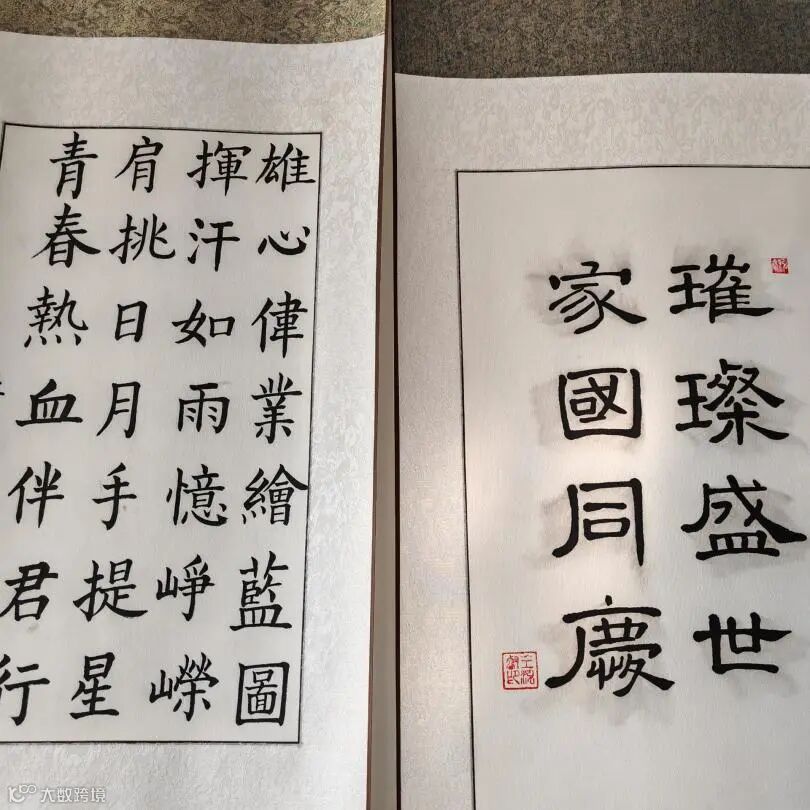 雄心偉業繪藍圖
揮汗如雨憶崢嶸
肩挑日月手提星
青春熱血伴君行
璀璨盛世
家國同慶
大数跨境